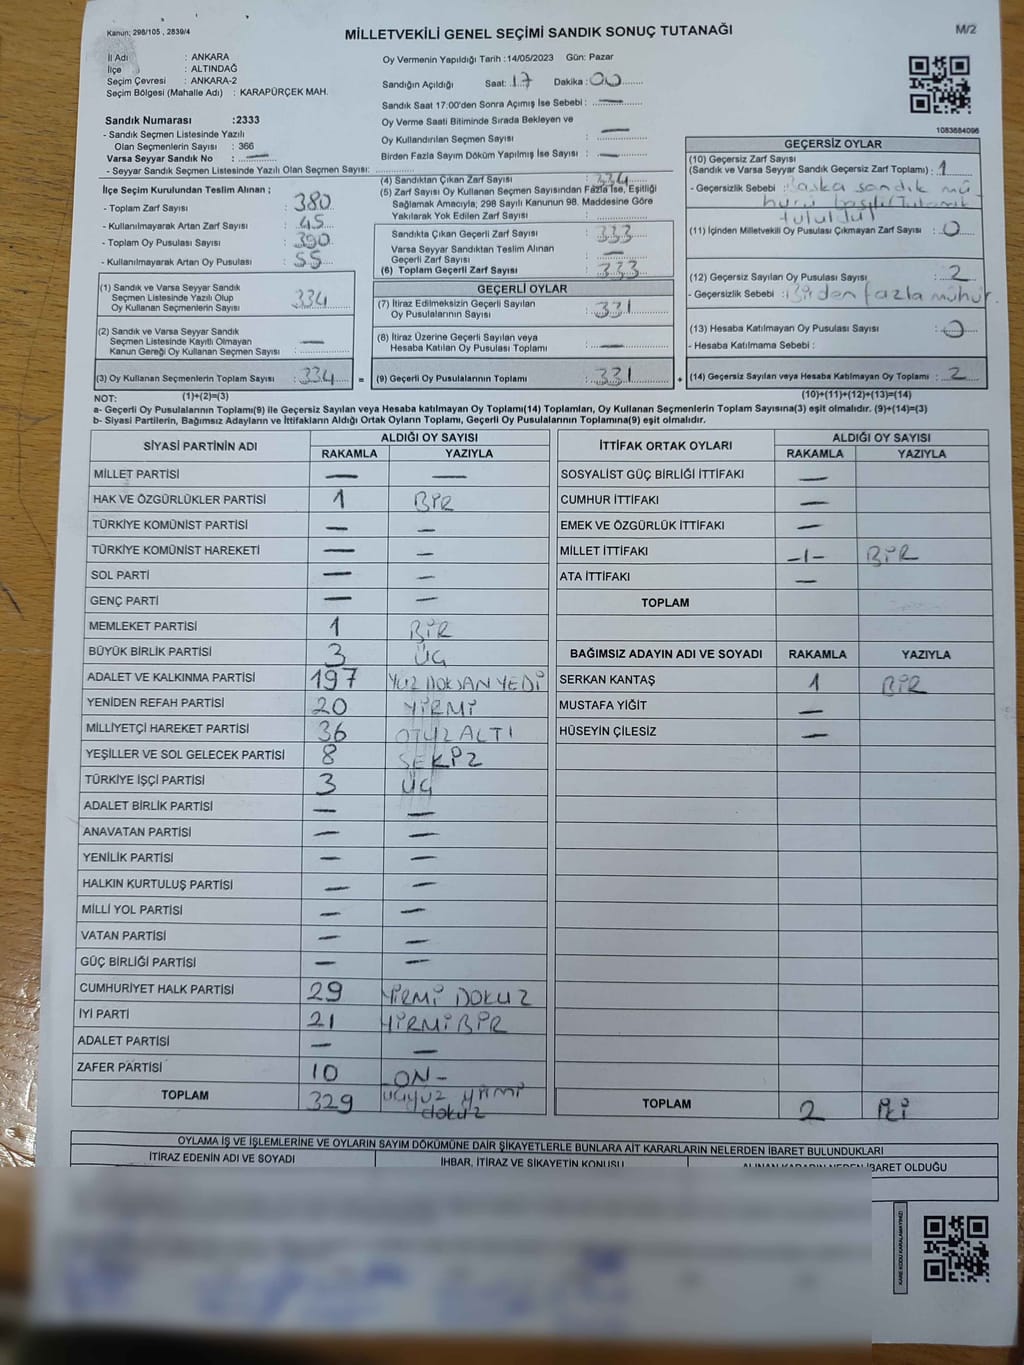 Kanun; 298/105 , 2839/4
MİLLETVEKİLİ GENEL SEÇİMİ SANDIK SONUÇ TUTANAĞI
M/2
İl Adı : ANKARA
İlçe : ALTINDAĞ
Seçim Çevresi : ANKARA-2
Seçim Bölgesi (Mahalle Adı) : KARAPÜRÇEK MAH.
Sandık Numarası :2333
- Sandık Seçmen Listesinde Yazılı
Olan Seçmenlerin Sayısı : 366
Varsa Seyyar Sandık No : —
- Seyyar Sandık Seçmen Listesinde Yazılı Olan Seçmen Sayısı:
İlçe Seçim Kurulundan Teslim Alınan ;
- Toplam Zarf Sayısı : 380
- Kullanılmayarak Artan Zarf Sayısı : 45
- Toplam Oy Pusulası Sayısı : 390
- Kullanılmayarak Artan Oy Pusulası : 55
(1) Sandık ve Varsa Seyyar Sandık
Seçmen Listesinde Yazılı Olup
Oy Kullanan Seçmenlerin Sayısı : 334
(2) Sandık ve Varsa Seyyar Sandık
Seçmen Listesinde Kayıtlı Olmayan
Kanun Gereği Oy Kullanan Seçmen Sayısı : —
(3) Oy Kullanan Seçmenlerin Toplam Sayısı : 334
Oy Vermenin Yapıldığı Tarih :14/05/2023 Gün: Pazar
Sandığın Açıldığı Saat: 17 Dakika : 00
Sandık Saat 17:00'den Sonra Açımış İse Sebebi : —
Oy Verme Saati Bitiminde Sırada Bekleyen ve
Oy Kullandırılan Seçmen Sayısı : —
Birden Fazla Sayım Döküm Yapılmış İse Sayısı : —
(4) Sandıktan Çıkan Zarf Sayısı : 334
(5) Zarf Sayısı Oy Kullanan Seçmen Sayısından Fazla İse, Eşitliği
Sağlamak Amacıyla; 298 Sayılı Kanunun 98. Maddesine Göre
Yakılarak Yok Edilen Zarf Sayısı :
Sandıkta Çıkan Geçerli Zarf Sayısı : 333
Varsa Seyyar Sandıktan Teslim Alınan
Geçerli Zarf Sayısı : —
(6) Toplam Geçerli Zarf Sayısı : 333
GEÇERLİ OYLAR
(7) İtiraz Edilmeksizin Geçerli Sayılan
Oy Pusulalarının Sayısı : 331
(8) İtiraz Üzerine Geçerli Sayılan veya
Hesaba Katılan Oy Pusulası Toplamı : —
= (9) Geçerli Oy Pusulalarının Toplamı : 331 +
1083684096
GEÇERSİZ OYLAR
(10) Geçersiz Zarf Sayısı
(Sandık ve Varsa Seyyar Sandık Geçersiz Zarf Toplamı) : 1
- Geçersizlik Sebebi : Başka sandık mü
hürü basılı/Tutanak
tutuldu
(11) İçinden Milletvekili Oy Pusulası Çıkmayan Zarf Sayısı : 0
(12) Geçersiz Sayılan Oy Pusulası Sayısı : 2
- Geçersizlik Sebebi : Birden fazla mühür.
(13) Hesaba Katılmayan Oy Pusulası Sayısı : 0
- Hesaba Katılmama Sebebi :
(14) Geçersiz Sayılan veya Hesaba Katılmayan Oy Toplamı : 2
NOT: (1)+(2)=(3) (10)+(11)+(12)+(13)=(14)
a- Geçerli Oy Pusulalarının Toplamı(9) ile Geçersiz Sayılan veya Hesaba katılmayan Oy Toplamı(14) Toplamları, Oy Kullanan Seçmenlerin Toplam Sayısına(3) eşit olmalıdır. (9)+(14)=(3)
b- Siyasi Partilerin, Bağımsız Adayların ve İttifakların Aldığı Ortak Oyların Toplamı, Geçerli Oy Pusulalarının Toplamına(9) eşit olmalıdır.
SİYASİ PARTİNİN ADI ALDIĞI OY SAYISI
RAKAMLA YAZIYLA
MİLLET PARTİSİ — —
HAK VE ÖZGÜRLÜKLER PARTİSİ 1 BİR
TÜRKİYE KOMÜNİST PARTİSİ — —
TÜRKİYE KOMÜNİST HAREKETİ — —
SOL PARTİ — —
GENÇ PARTİ — —
MEMLEKET PARTİSİ 1 BİR
BÜYÜK BİRLİK PARTİSİ 3 ÜÇ
ADALET VE KALKINMA PARTİSİ 197 YÜZ DOKSAN YEDİ
YENİDEN REFAH PARTİSİ 20 YİRMİ
MİLLİYETÇİ HAREKET PARTİSİ 36 OTUZ ALTI
YEŞİLLER VE SOL GELECEK PARTİSİ 8 SEKİZ
TÜRKİYE İŞÇİ PARTİSİ 3 ÜÇ
ADALET BİRLİK PARTİSİ — —
ANAVATAN PARTİSİ — —
YENİLİK PARTİSİ — —
HALKIN KURTULUŞ PARTİSİ — —
MİLLİ YOL PARTİSİ — —
VATAN PARTİSİ — —
GÜÇ BİRLİĞİ PARTİSİ — —
CUMHURİYET HALK PARTİSİ 29 YİRMİ DOKUZ
İYİ PARTİ 21 YİRMİ BİR
ADALET PARTİSİ — —
ZAFER PARTİSİ 10 -ON-
TOPLAM 329 üçyüz yirmi
dokuz
İTTİFAK ORTAK OYLARI ALDIĞI OY SAYISI
RAKAMLA YAZIYLA
SOSYALİST GÜÇ BİRLİĞİ İTTİFAKI —
CUMHUR İTTİFAKI —
EMEK VE ÖZGÜRLÜK İTTİFAKI —
MİLLET İTTİFAKI -1- BİR
ATA İTTİFAKI —
TOPLAM
BAĞIMSIZ ADAYIN ADI VE SOYADI RAKAMLA YAZIYLA
SERKAN KANTAŞ 1 BİR
MUSTAFA YİĞİT —
HÜSEYİN ÇİLESİZ —
TOPLAM 2 İKİ
OYLAMA İŞ VE İŞLEMLERİNE VE OYLARIN SAYIM DÖKÜMÜNE DAİR ŞİKAYETLERLE BUNLARA AİT KARARLARIN NELERDEN İBARET BULUNDUKLARI
İTİRAZ EDENİN ADI VE SOYADI İHBAR, İTİRAZ VE ŞİKAYETİN KONUSU ALINAN KARARIN NEDEN İBARET OLDUĞU
KARE KODU KARALAMAYINIZ!